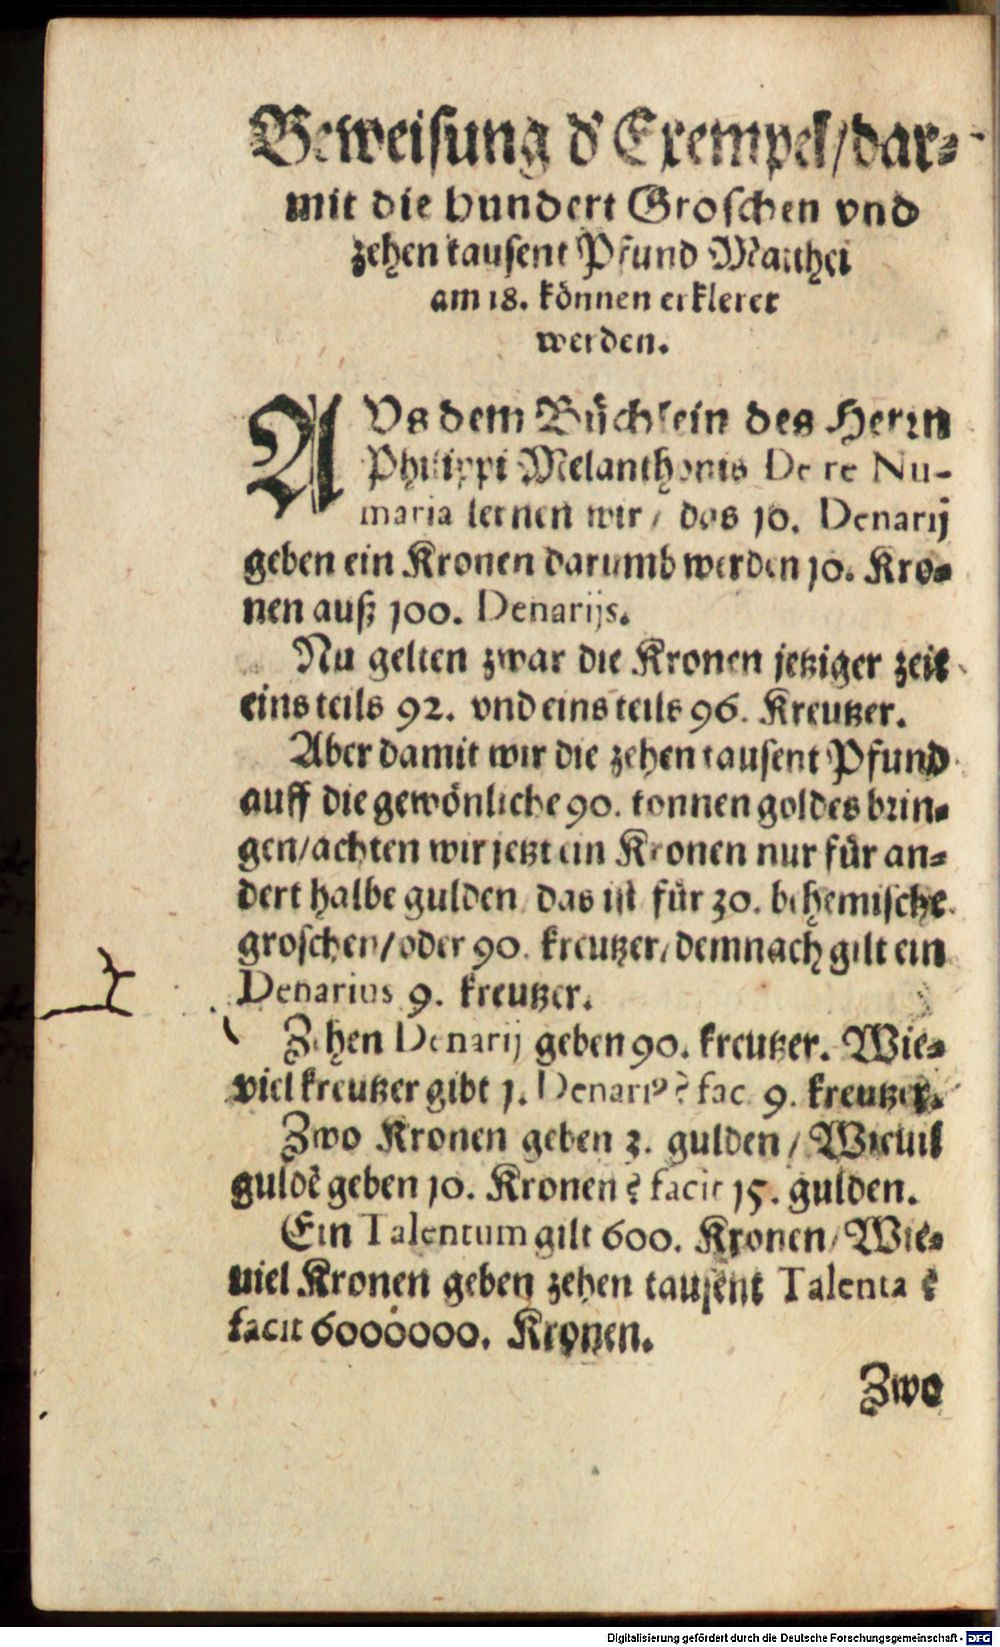 Beweisung d' Exempel/dar-
mit die hundert Groschen vnd
zehen tausent Pfund Matthei
am 18. können erkleret
werden.
AVs dem Büchlein des Herrn
Philippi Melanthonis De re Nu-
maria lernen wir / das 10. Denarij
geben ein Kronen darumb werden 10. Kro-
nen auß 100. Denarijs.
Nu gelten zwar die Kronen jetziger zeit
eins teils 92. vnd eins teils 96. Kreutzer.
Aber damit wir die zehen tausent Pfund
auff die gewönliche 90. tonnen goldes brin-
gen/achten wir jetzt ein Kronen nur für an-
dert halbe gulden/ das ist für 30. behemische
groschen/oder 90. kreutzer/demnach gilt ein
Denarius 9. kreutzer.
Zehen Denarij geben 90. kreutzer. Wie-
viel kreutzer gibt 1. Denariꝰ? fac. 9. kreutzer.
Zwo Kronen geben 3. gulden / Wieuil
guldē geben 10. Kronen? facit 15. gulden.
Ein Talentum gilt 600. Kronen/Wie-
uiel Kronen geben zehen tausent Talenta?
facit 6000000. Kronen.
Zwo
Digitalisierung gefördert durch die Deutsche Forschungsgemeinschaft - DFG